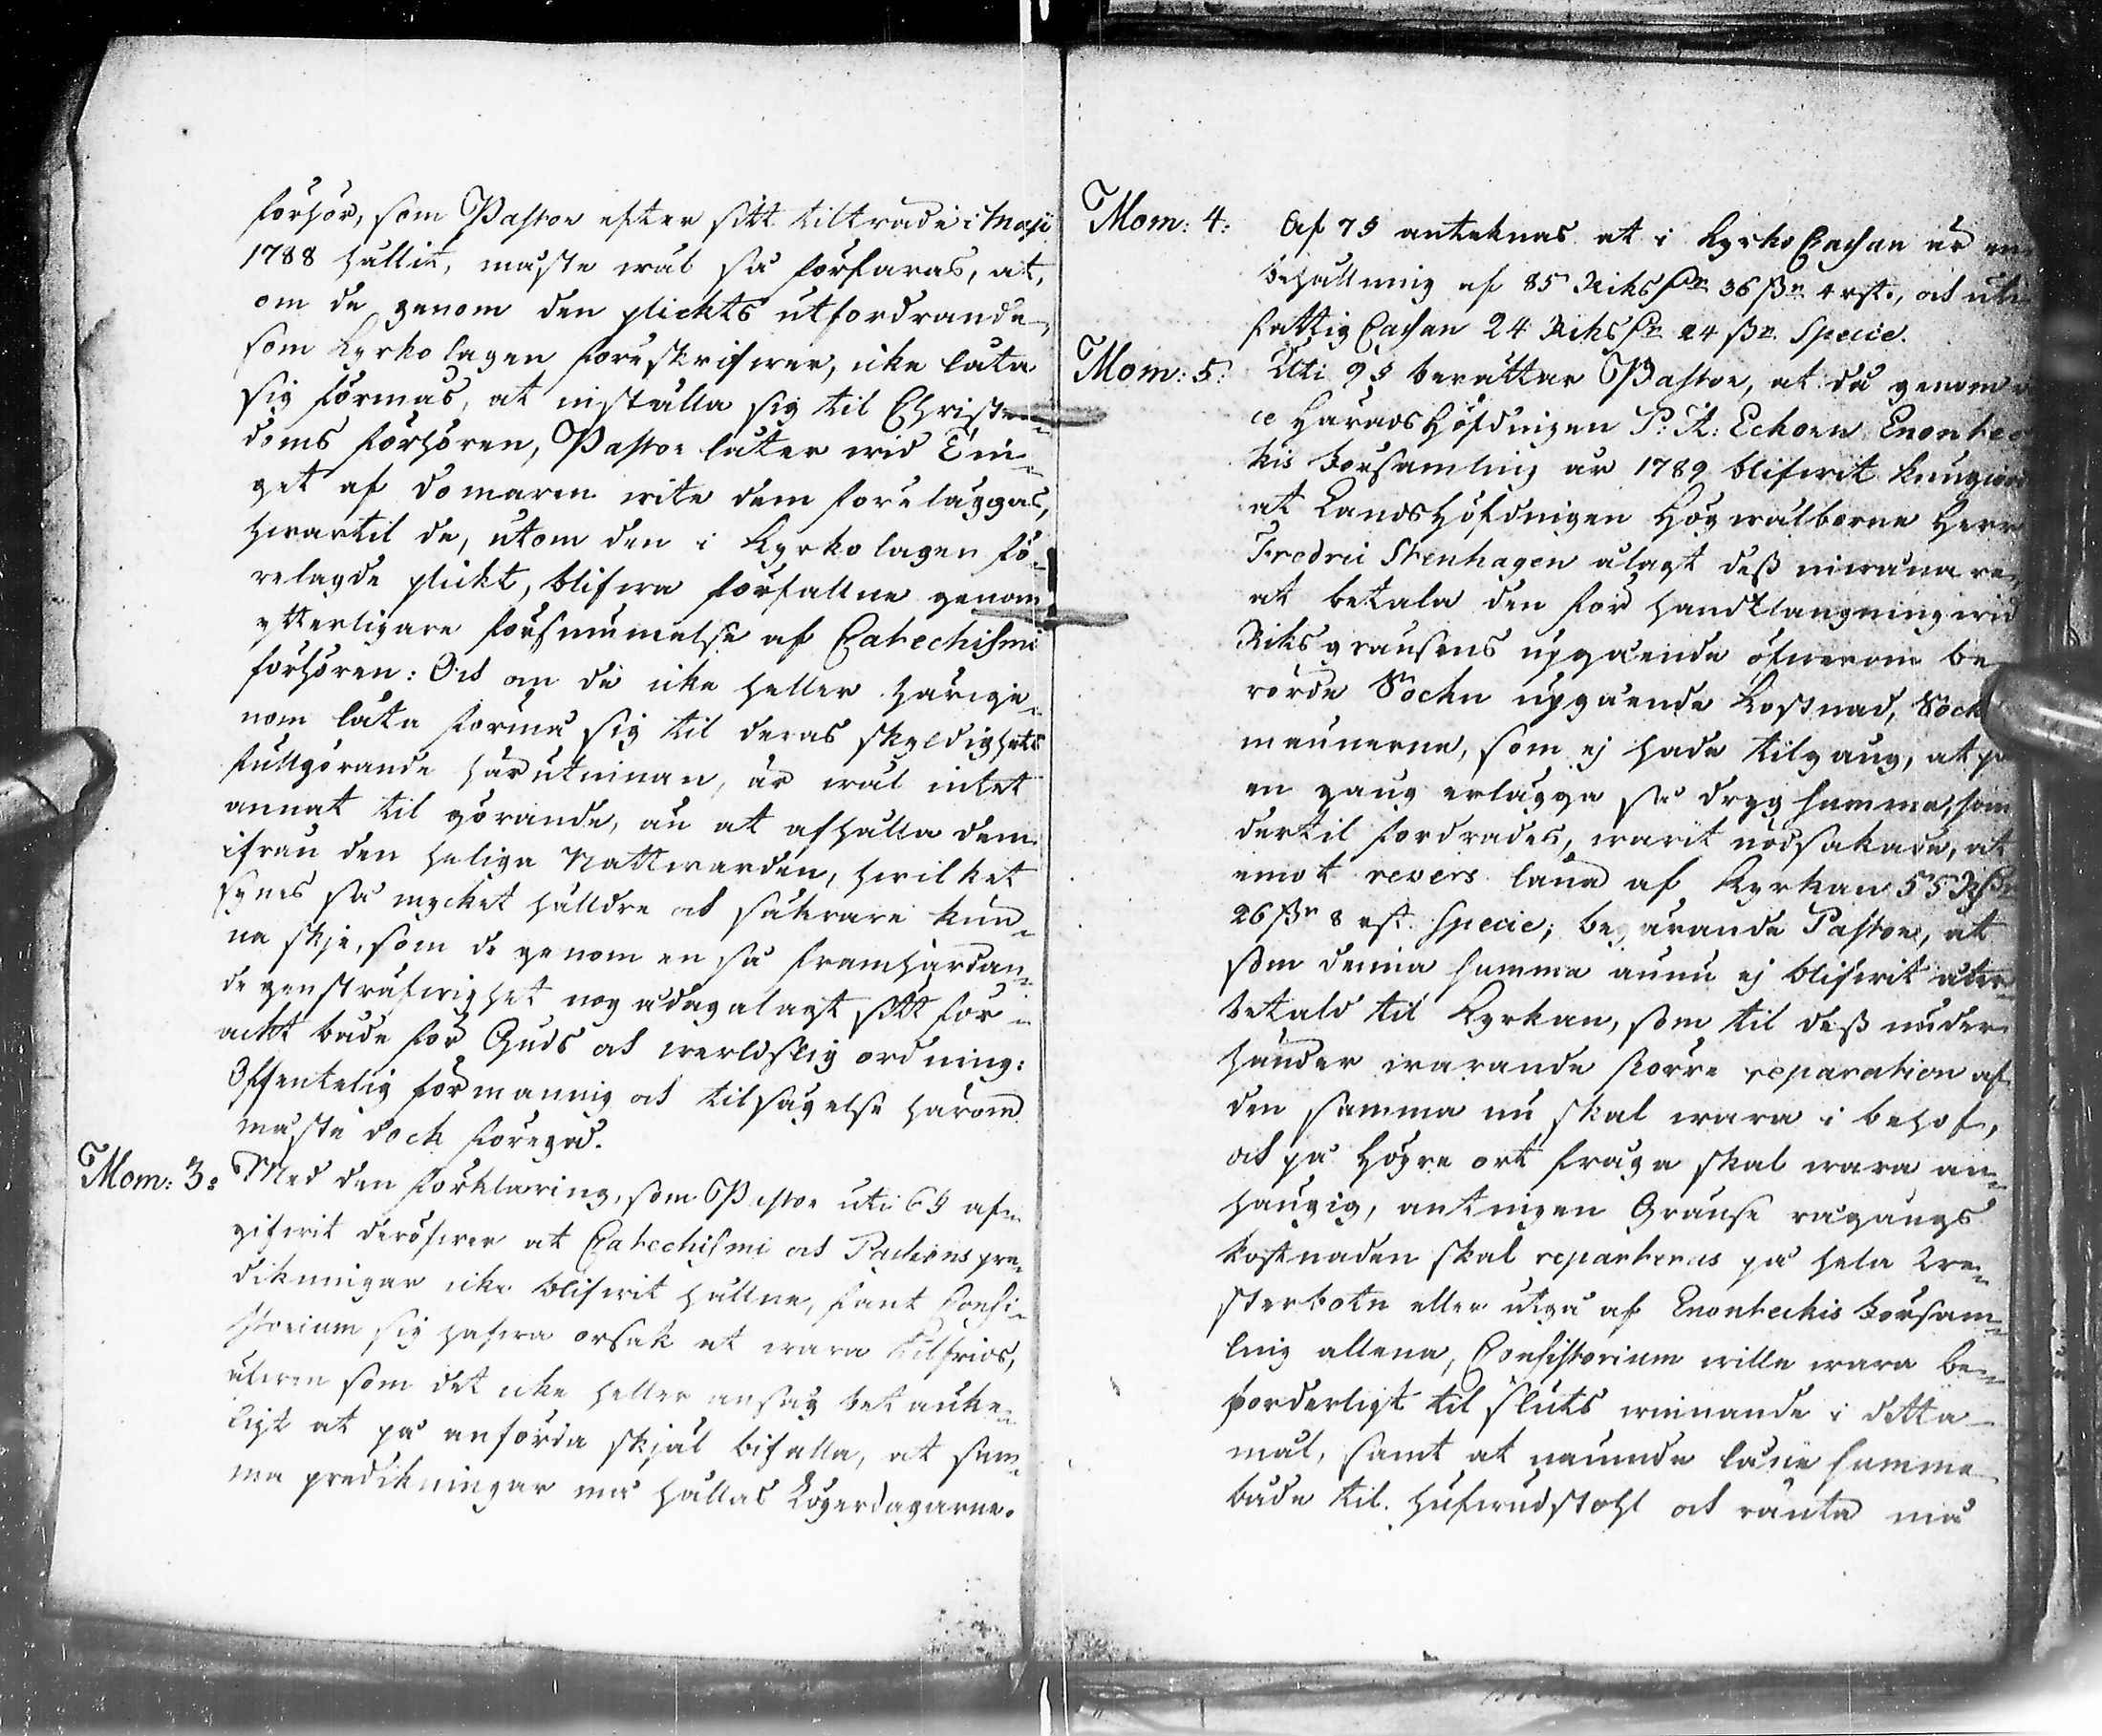 förhör, som Pastor efter sitt tilträde i Maji
1788 hållit, måste wäl så förfaras, at,
om de genom den plickts utfordrande,
som Kyrkolagen föreskrifwer, icke låta
sig förmås, at inställa sig til Christen-
doms förhören, Pastor låter wid Tin-
get af domaren wite dem föreläggas,
hwartil de, utom den i Kyrkolagen fö-
relagde plickt, blifwa förfallne genom
ytterligare försummelse af Catechismi
förhören: Och om de icke heller härige-
nom låta förmå sig til deras skyldighets
fullgörande härutinnan, är wäl intet
annat til görande, än at afhålla dem
ifrån den heliga Nattwarden, hwilket
synes så mycket hälldre och säkrare kun-
na skje, som de genom en så framhärdan-
de gensträfwighet nog ådagalagt sitt för-
ackt både för Guds och werldslig ordning:
Offentelig förmaning och tilsägelse härom
måste dock föregå.
Mom: 3: Med den förklaring, som Pastor uti 6 § af-
gifwit deröfwer at Catechismi och Passions pre-
dikningar icke blifwit hållne, fant Consi-
storium sig hafwa orsak at wara tilfrids,
äfwen som det icke heller ansåg betänke-
ligt at på anförda skjäl bifalla, at sam-
ma predikningar må hållas Lögerdagarne.
Mom: 4: Af 7 § anteknas at i Kyrko Cassan är en
behållning af 85 Riks Dr 36 ßr 4 rst., och uti
fattig Cassan 24 Riks Dr 24 ßr Specie.
Mom: 5: Uti 9 § berättar Pastor, at då genom
ce Härads Höfdingen P: A: Ekorn Enonte
kis Församling år 1789 blifwit kungjord
at Lands Höfdingen Högwälborne Herr
Fredric Stenhagen ålagt dess inwånare
at betala den för handtlangning wid
Riksgränsens upgående öfwer om be-
rörde Sochn upgående Kostnad, Sock
männerne, som ej hade tilgång, at på
en gång erlägga så dryg summa, som
dertil fordrades, warit nödsakade, at
emot revers låna af Kyrkan 55 R Dr
26 ßr 8 rst. Specie; begärande Pastor, at
som denna summa ännu ej blifwit åter-
betald til Kyrkan, som til dess under
händer warande större reparation af
den samma nu skal wara i behof,
och på Högre ort fråga skal wara an-
hängig, antingen Gränse rågångs
kostnaden skal reparteras på hela We-
sterbotn eller utgå af Enontekis Försam-
ling allena, Consistorium wille wara be-
forderligt til sluts winnande i detta
mål, samt at nämnde låne summa
både til hufwudstohl och ränta må